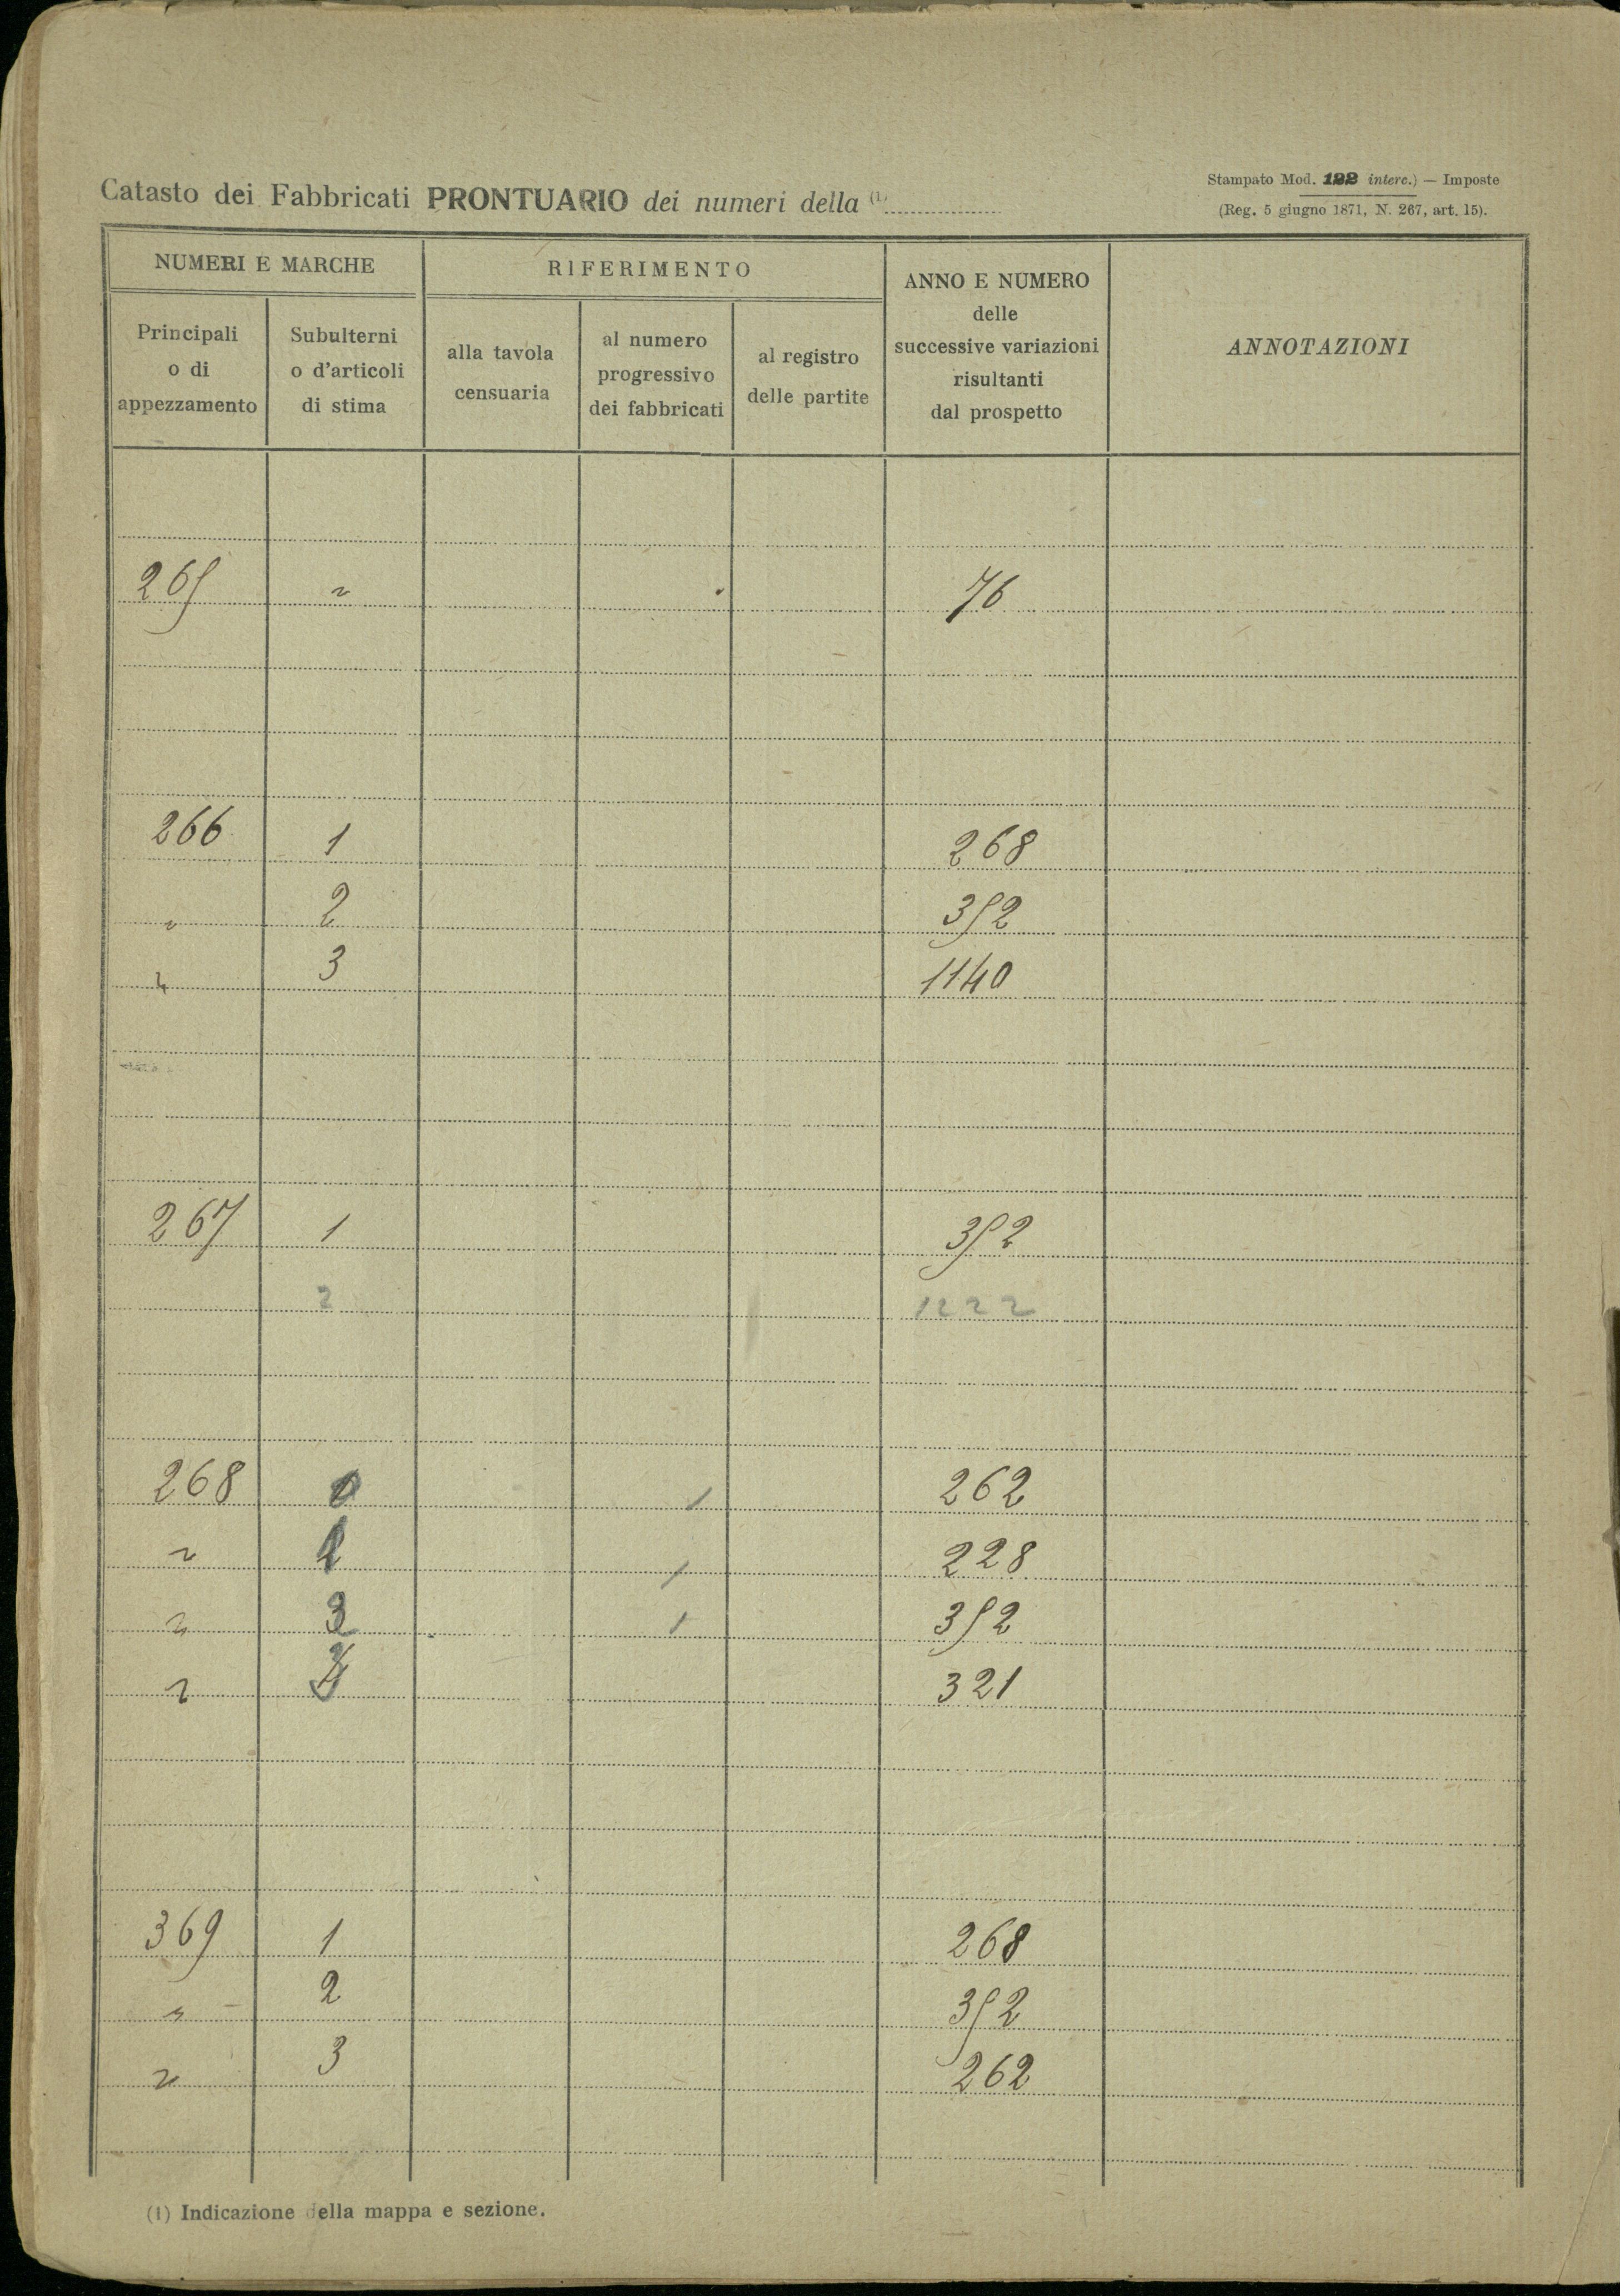 Catasto dei Fabbricati PRONTUARIO dei numeri della (1)
Stampato Mod. 122 interc.) — Imposte
(Reg. 5 giugno 1871, N. 267, art. 15).
NUMERI E MARCHE
RIFERIMENTO
ANNO E NUMERO
delle
successive variazioni
risultanti
dal prospetto
ANNOTAZIONI
Principali
o di
appezzamento
Subulterni
o d'articoli
di stima
alla tavola
censuaria
al numero
progressivo
dei fabbricati
al registro
delle partite
265 " 76
266 1 268
" 2 352
" 3 1140
267 1 352
2 1222
268 / 262
" / 228
" / 352
" 321
369 1 268
" 2 352
" 3 262
(1) Indicazione della mappa e sezione.